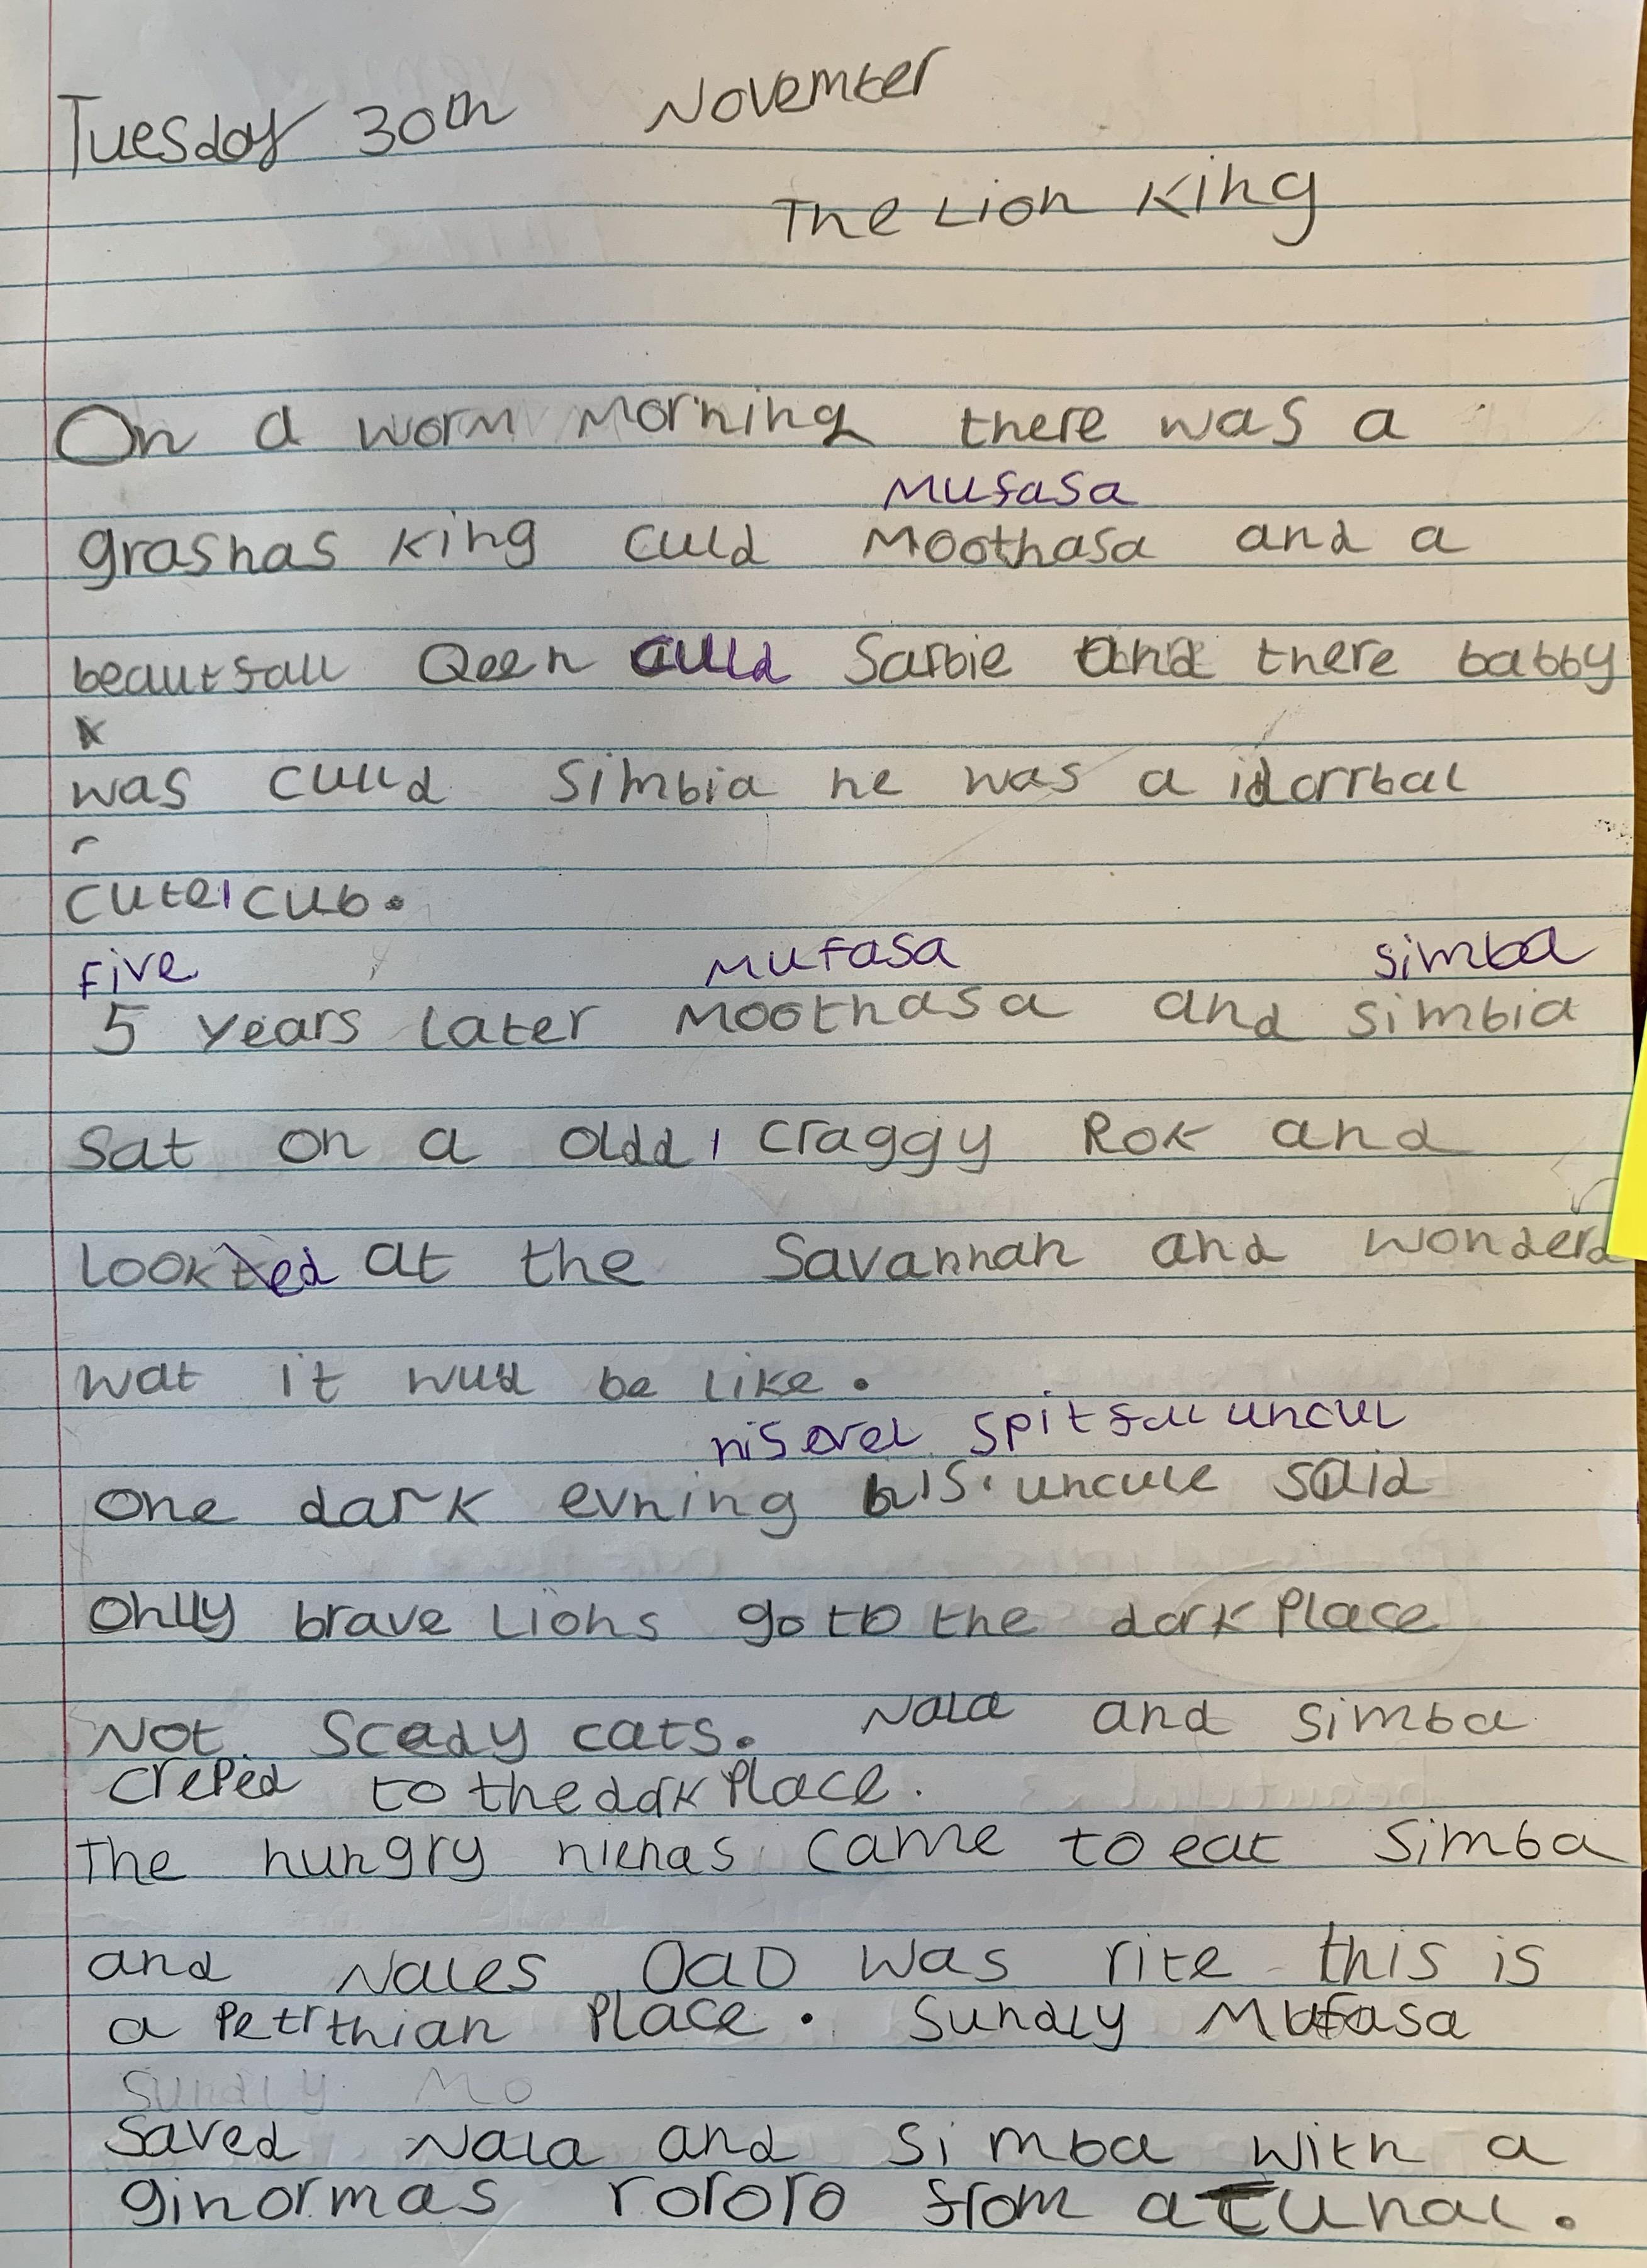 Tuesday 30th November
The Lion King
On a worm morning there was a
Mufasa
grashas king culd Moothasa and a
beautfall Qeen culld Sarbie and there babby
was culld simbia he was a idorrbal
cute, cub.
five Mufasa simba
5 years later Moothasa and simbia
sat on a oldd, craggy Rok and
looked at the Savannah and wonderd
wat it wud be like.
his evel spitfall uncul
one dark evning his uncule said
onlly brave Lions go to the dark place
Not scaedy cats. Nala and simba
creped to the dark place.
The hungry hienas came to eat Simba
and Nales Dad was rite this is
a petrthian place. Sundly Mufasa
Sundly Mo
saved Nala and Simba with a
ginormas rororo from a tunal.